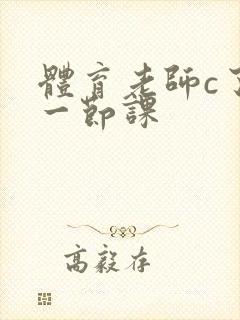 體育老師c了
一節課
高毅存